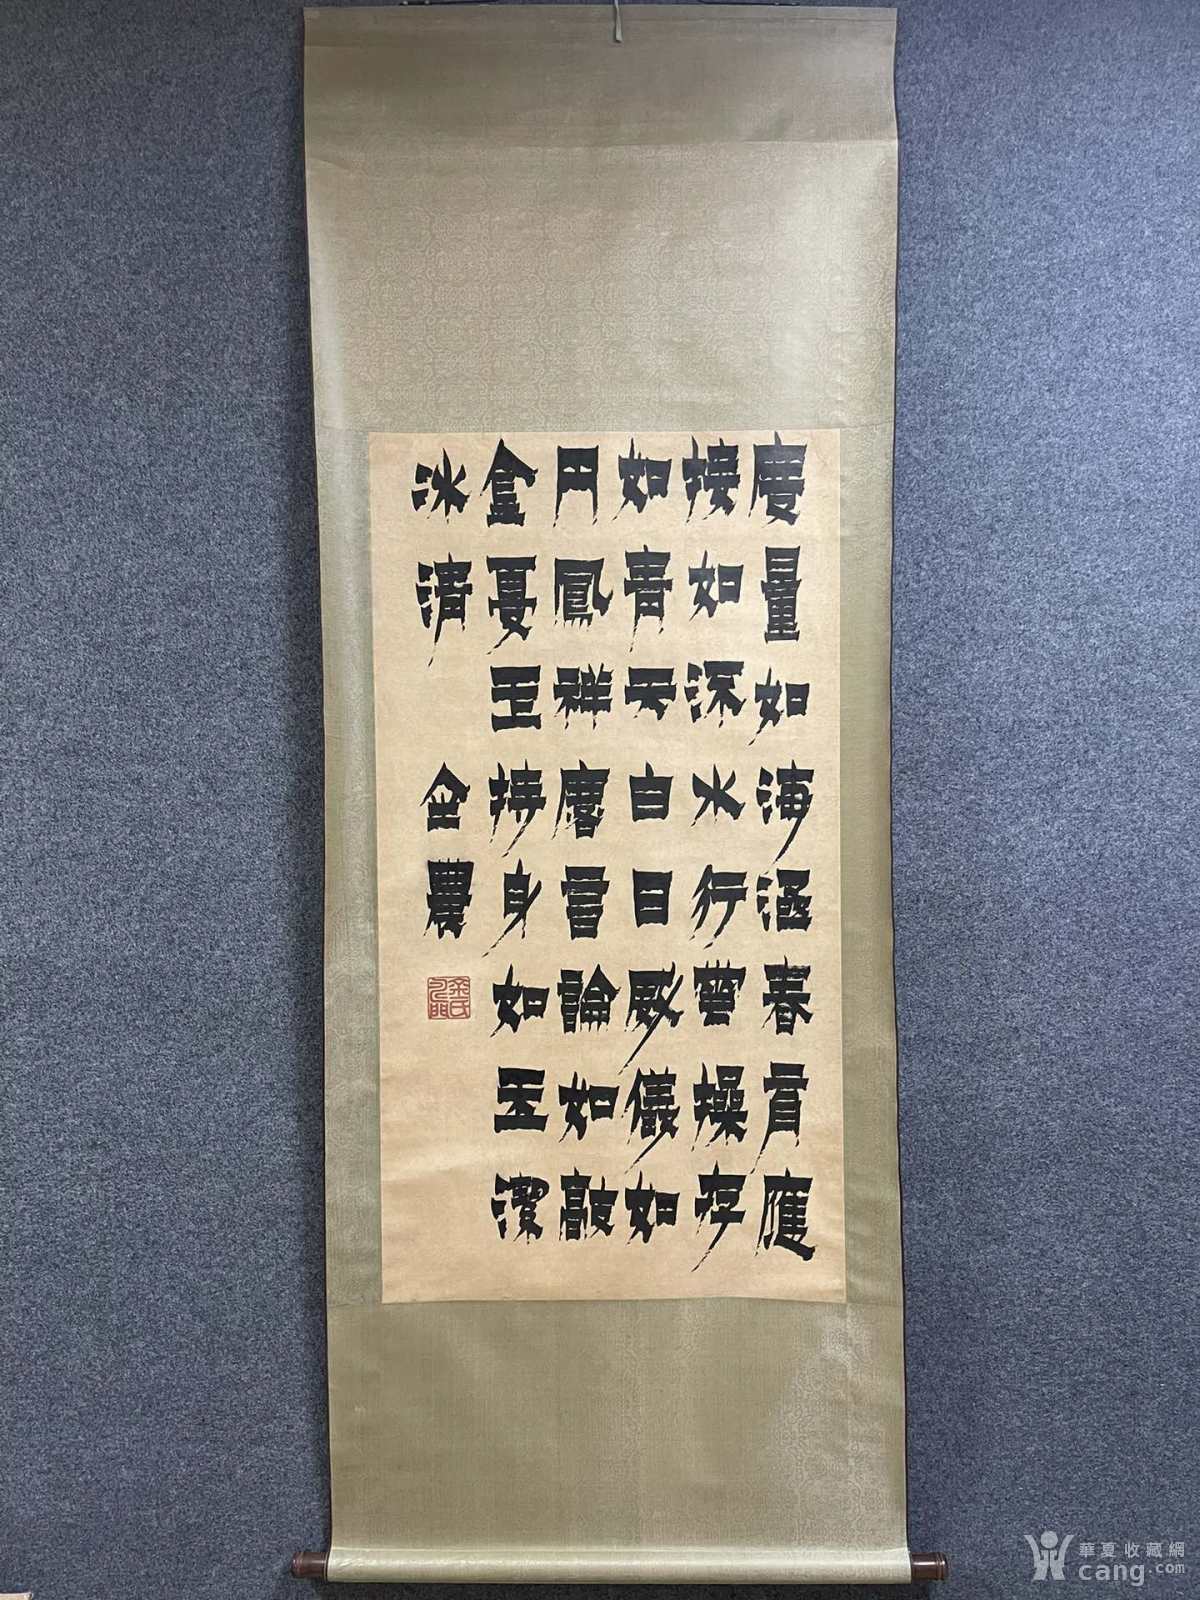 度量如海涵春育應
接如流水行雲操存
如青天白日威儀如
丹鳳祥麐言論如敲
金戛玉持身如玉潔
冰清
金農
金氏
華夏收藏網
cang.com